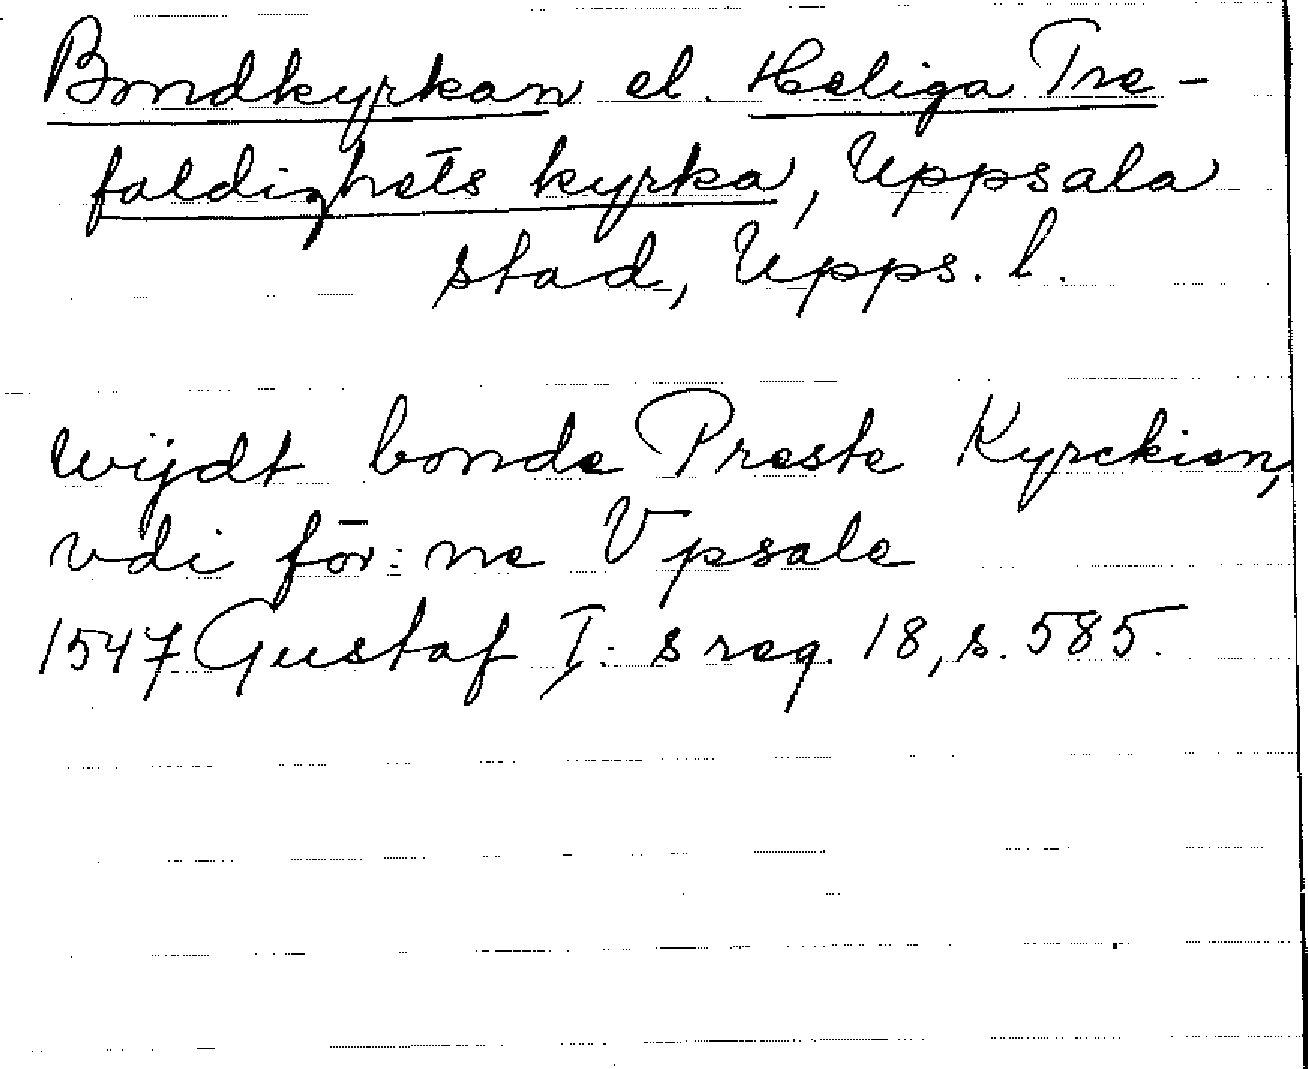 Bondkyrkan el. Heliga Tre-
faldighets kyrka, Uppsala
stad, Upps. l.
wijdt bonde Preste Kyrckian,
vdi för:ne Vpsale
1547 Gustaf I:s reg. 18, s. 585.